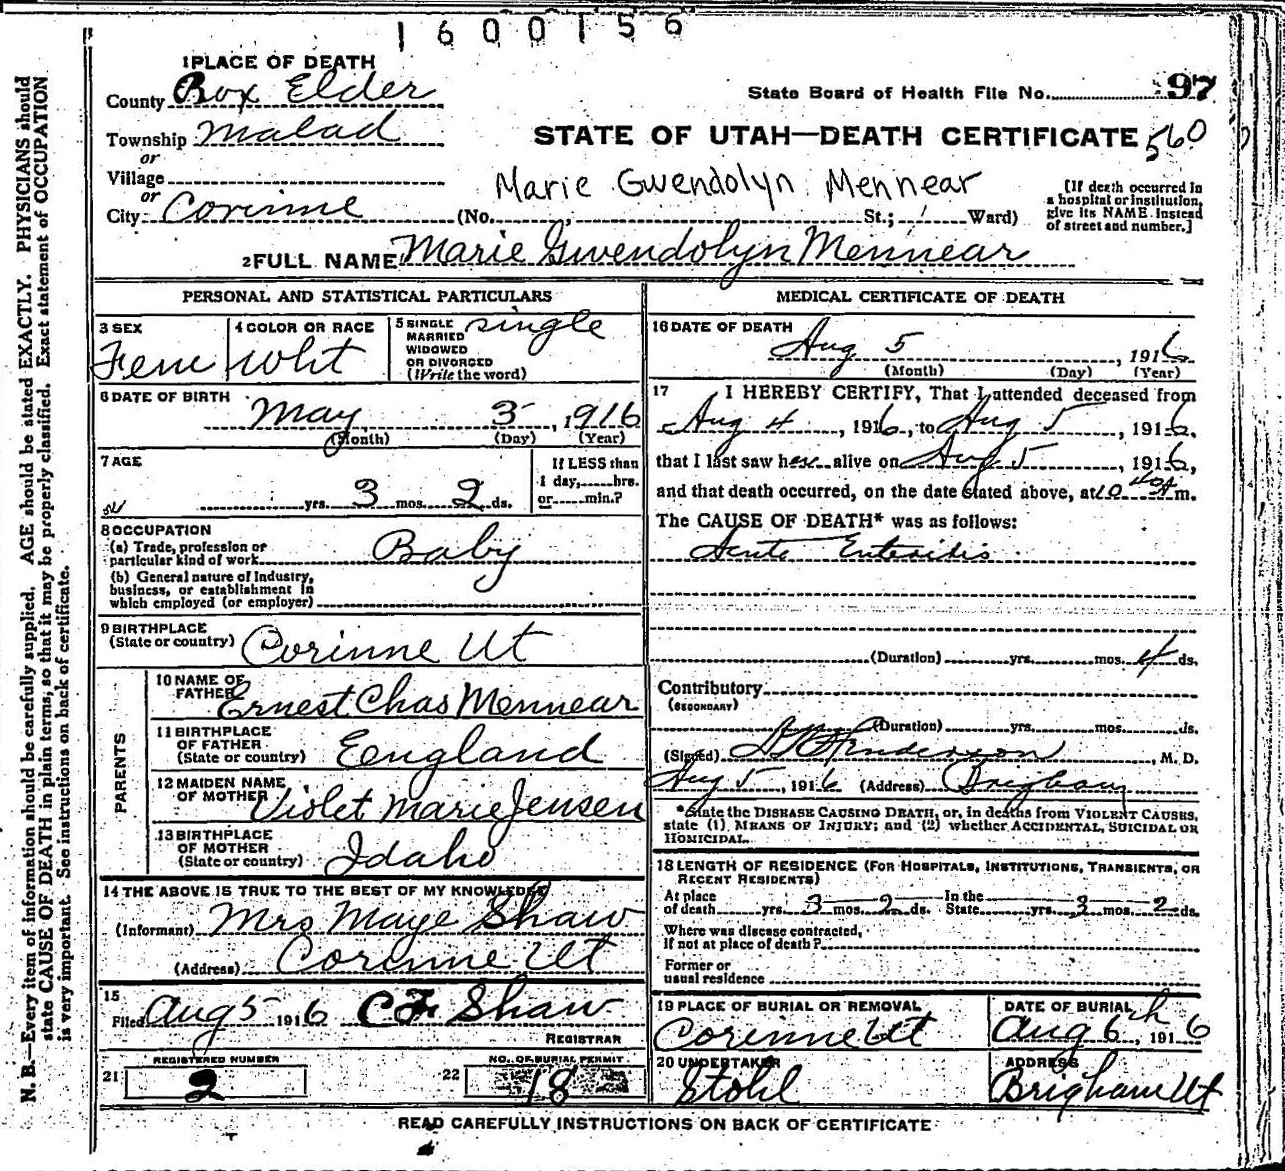 1600156
1 PLACE OF DEATH
County Box Elder
State Board of Health File No. 97
Township Malad
STATE OF UTAH—DEATH CERTIFICATE 560
or
Village
or
Marie Gwendolyn Mennear
[If death occurred in
a hospital or institution,
give its NAME instead
of street and number.]
City Corinne (No. , St.; Ward)
2 FULL NAME Marie Gwendolyn Mennear
PERSONAL AND STATISTICAL PARTICULARS
3 SEX
Fem
4 COLOR OR RACE
Wht
5 SINGLE
MARRIED
WIDOWED
OR DIVORCED
(Write the word)
single
6 DATE OF BIRTH
May 3 , 1916
(Month) (Day) (Year)
7 AGE
yrs. 3 mos. 2 ds.
If LESS than
1 day, hrs.
or min.?
8 OCCUPATION
(a) Trade, profession or
particular kind of work Baby
(b) General nature of Industry,
business, or establishment in
which employed (or employer)
9 BIRTHPLACE
(State or country) Corinne Ut
PARENTS
10 NAME OF
FATHER Ernest Chas Mennear
11 BIRTHPLACE
OF FATHER
(State or country) Eengland
12 MAIDEN NAME
OF MOTHER Violet Marie Jensen
13 BIRTHPLACE
OF MOTHER
(State or country) Idaho
14 THE ABOVE IS TRUE TO THE BEST OF MY KNOWLEDGE
(Informant) Mrs Maye Shaw
(Address) Corinne Ut
15
Filed Aug 5 1916 C F Shaw
REGISTRAR
REGISTERED NUMBER
21 2
NO. OF BURIAL PERMIT
22 18
MEDICAL CERTIFICATE OF DEATH
16 DATE OF DEATH
Aug 5 , 1916
(Month) (Day) (Year)
17 I HEREBY CERTIFY, That I attended deceased from
Aug 4 , 1916, to Aug 5 , 1916,
that I last saw her alive on Aug 5 , 1916,
and that death occurred, on the date stated above, at 10 m.
The CAUSE OF DEATH* was as follows:
Acute Enteritis
(Duration) yrs. mos. 4 ds.
Contributory
(SECONDARY)
(Duration) yrs. mos. ds.
(Signed) Henderson , M. D.
Aug 5 , 1916 (Address) Brigham
*State the DISEASE CAUSING DEATH, or, in deaths from VIOLENT CAUSES,
state (1) MEANS OF INJURY; and (2) whether ACCIDENTAL, SUICIDAL OR
HOMICIDAL.
18 LENGTH OF RESIDENCE (FOR HOSPITALS, INSTITUTIONS, TRANSIENTS, OR
RECENT RESIDENTS)
At place
of death yrs. 3 mos. 2 ds. In the
State yrs. 3 mos. 2 ds.
Where was disease contracted,
if not at place of death?
Former or
usual residence
19 PLACE OF BURIAL OR REMOVAL
Corinne Ut
DATE OF BURIAL
Aug 6th, 1916
20 UNDERTAKER
Stohl
ADDRESS
Brigham Ut
READ CAREFULLY INSTRUCTIONS ON BACK OF CERTIFICATE
N. B.—Every item of information should be carefully supplied. AGE should be stated EXACTLY. PHYSICIANS should
state CAUSE OF DEATH in plain terms, so that it may be properly classified. Exact statement of OCCUPATION
is very important. See instructions on back of certificate.